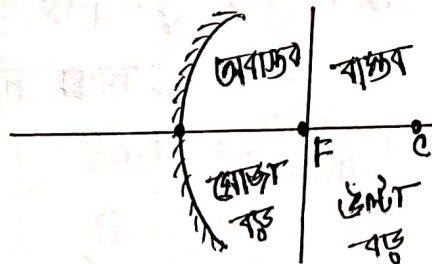 অবাস্তব
বাস্তব
F
C
সোজা
বড়
উল্টা
বড়